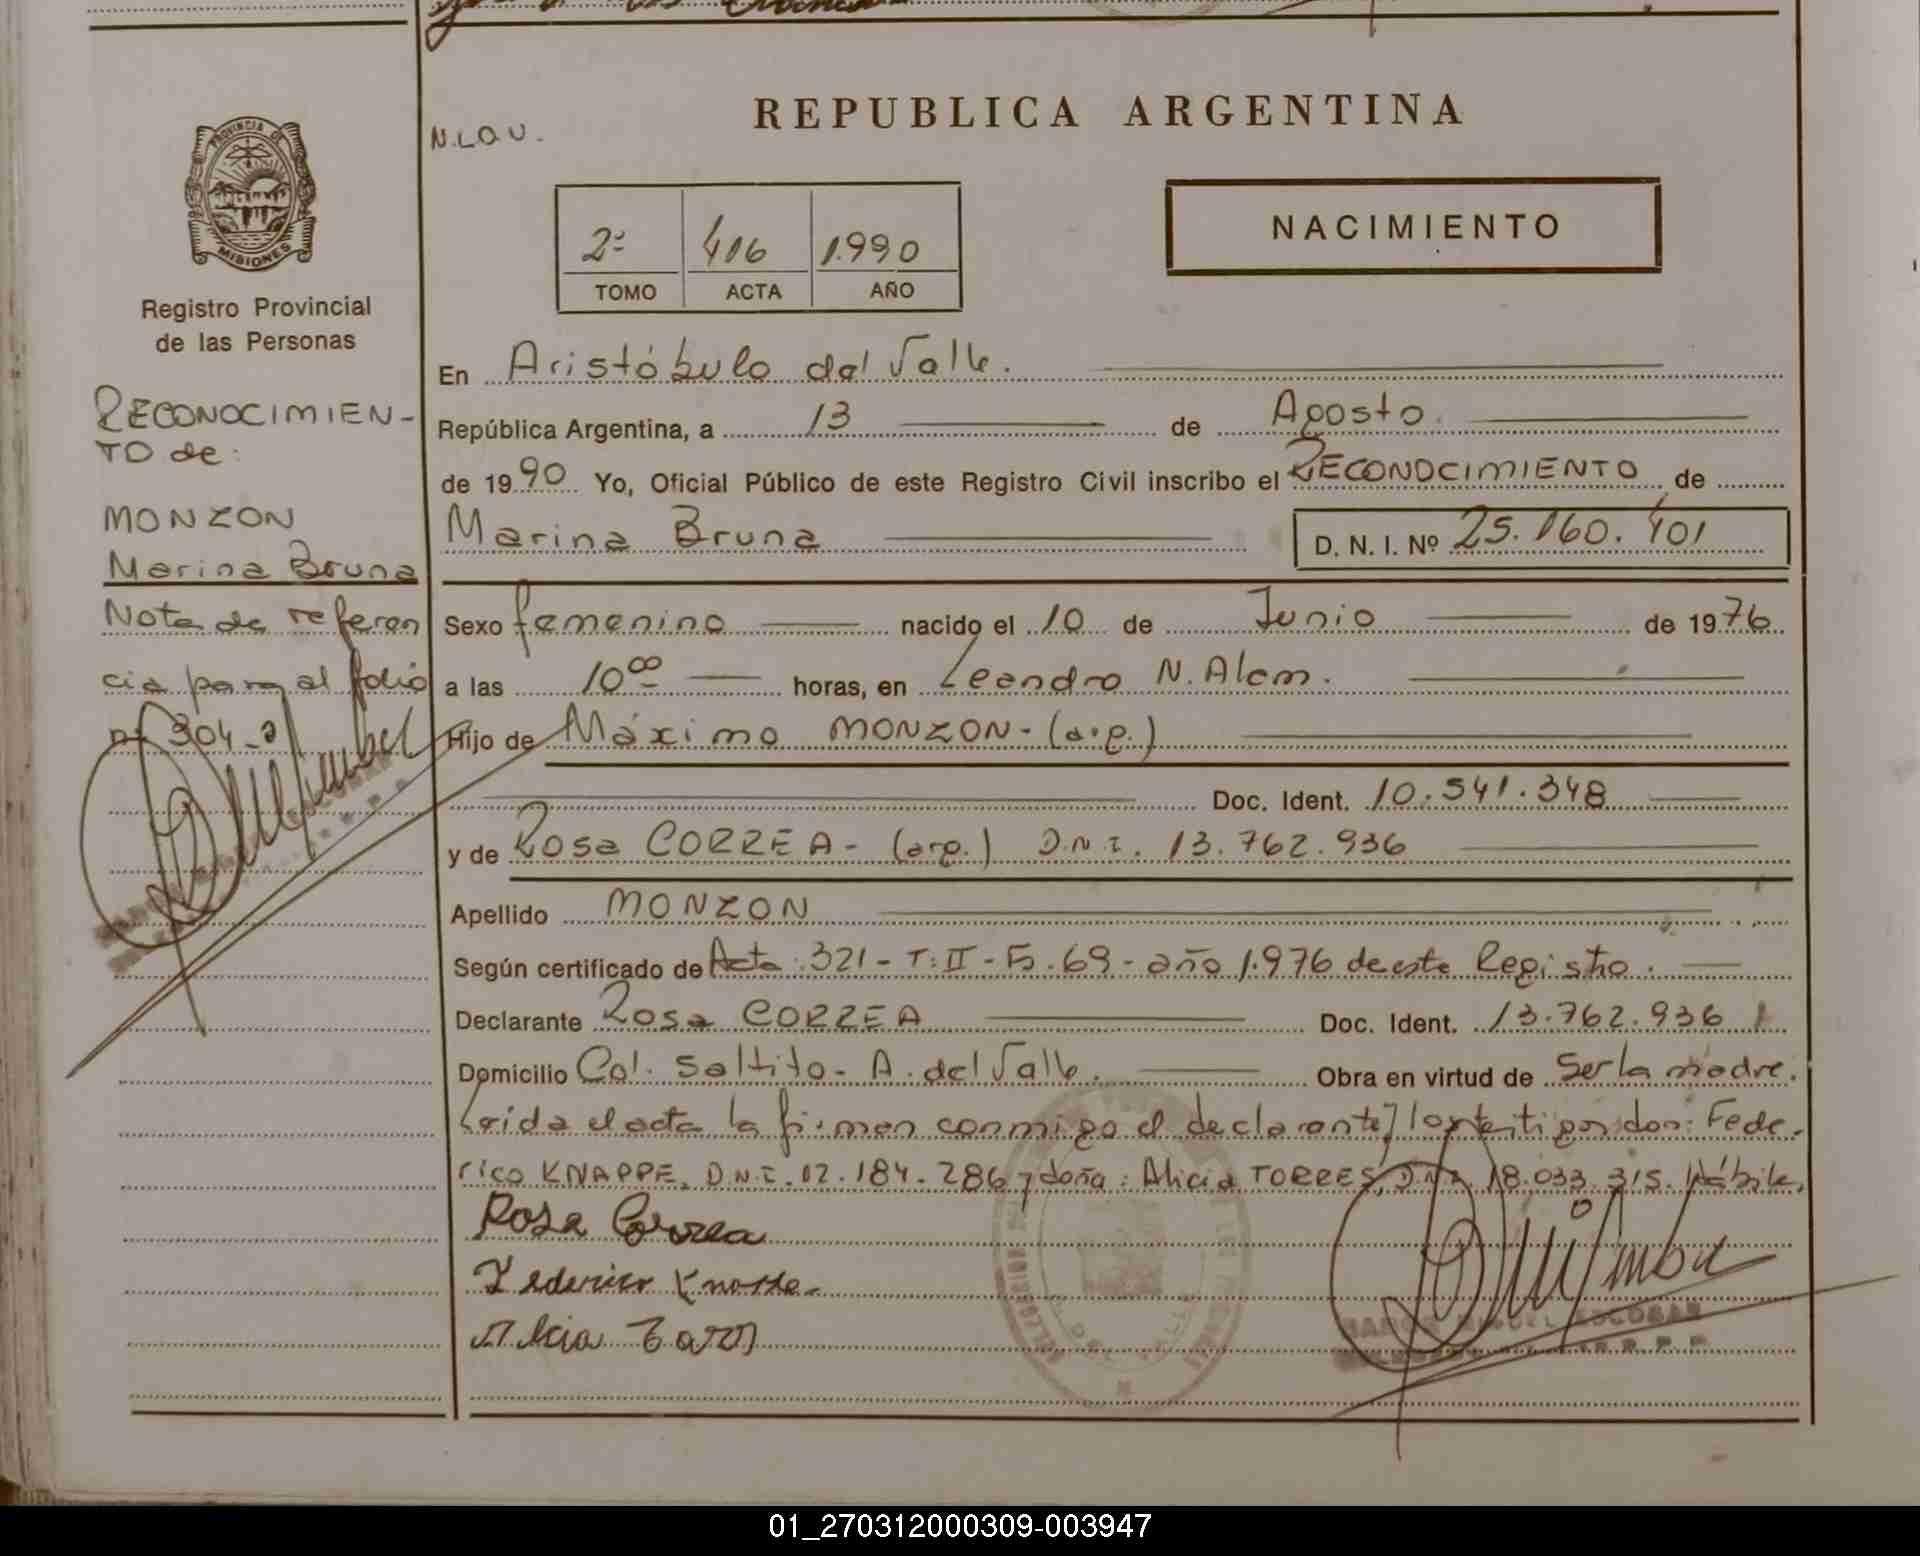 PROVINCIA DE
MISIONES
Registro Provincial
de las Personas
RECONOCIMIEN-
TO de:
MONZON
Marina Bruna
Nota de referen
cia para al folio
nº 304-
N.LOU.
REPUBLICA ARGENTINA
NACIMIENTO
2º 416 1.990
TOMO ACTA AÑO
En Aristóbulo del Valle.
República Argentina, a 13 de Agosto.
de 1990 Yo, Oficial Público de este Registro Civil inscribo el RECONOCIMIENTO de
Marina Bruna D. N. I. Nº 25.160.401
Sexo femenino nacido el 10 de Junio de 1976
a las 10ºº horas, en Leandro N. Alem.
Hijo de Máximo MONZON- (arg.)
Doc. Ident. 10.541.348
y de Rosa CORREA- (arg.) D.N.I. 13.762.936
Apellido MONZON
Según certificado de Acta: 321- T: II- F. 69- año 1.976 de este Registro.
Declarante Rosa CORREA Doc. Ident. 13.762.936
Domicilio Col. Saltito- A. del Valle. Obra en virtud de Ser la madre.
Leida el acta la firman conmigo el declarante y los testigos don: Fede-
rico KNAPPE, D.N.I. 02.184.286 y doña: Alicia TORRES, D.N.I. 18.033.315. Hábiles
Rosa Correa
Federico Knappe
Alicia
MIGUEL ESCOBAR
01_270312000309-003947